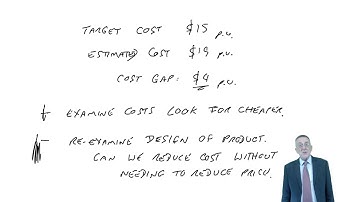 TARGET COST $15 p.u.
ESTIMATED COST $19 p.u.
COST GAP: $4 p.u.
- EXAMINING COSTS LOOK FOR CHEAPER.
- RE-EXAMINE DESIGN OF PRODUCT.
CAN WE REDUCE COST WITHOUT
NEEDING TO REDUCE PRICE.